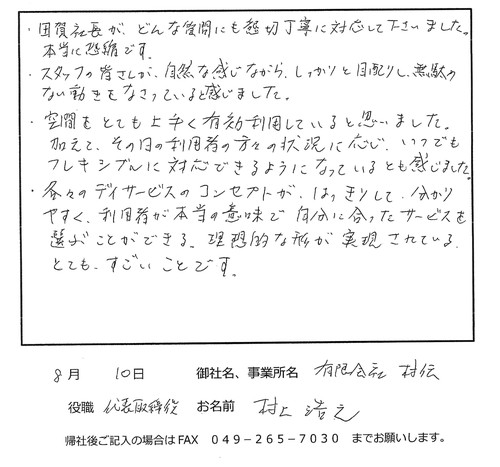 ・国賀社長が、どんな質問にも懇切丁寧に対応して下さいました。
本当に恐縮です。
・スタッフの皆さんが、自然な感じながら、しっかりと目配りし、無駄の
ない動きをなさっていると感じました。
・空間をとても上手く有効利用していると思いました。
加えて、その日の利用者の方々の状況に応じ、いつでも
フレキシブルに対応できるようになっているとも感じました。
・各々のデイサービスのコンセプトが、はっきりして、分かり
やすく、利用者が本当の意味で自分に合ったサービスを
選ぶことができる。理想的な形が実現されている。
とても、すごいことです。
8月 10日 御社名、事業所名 有限会社 村伝
役職 代表取締役 お名前 村上 浩之
帰社後ご記入の場合はFAX 049-265-7030 までお願いします。